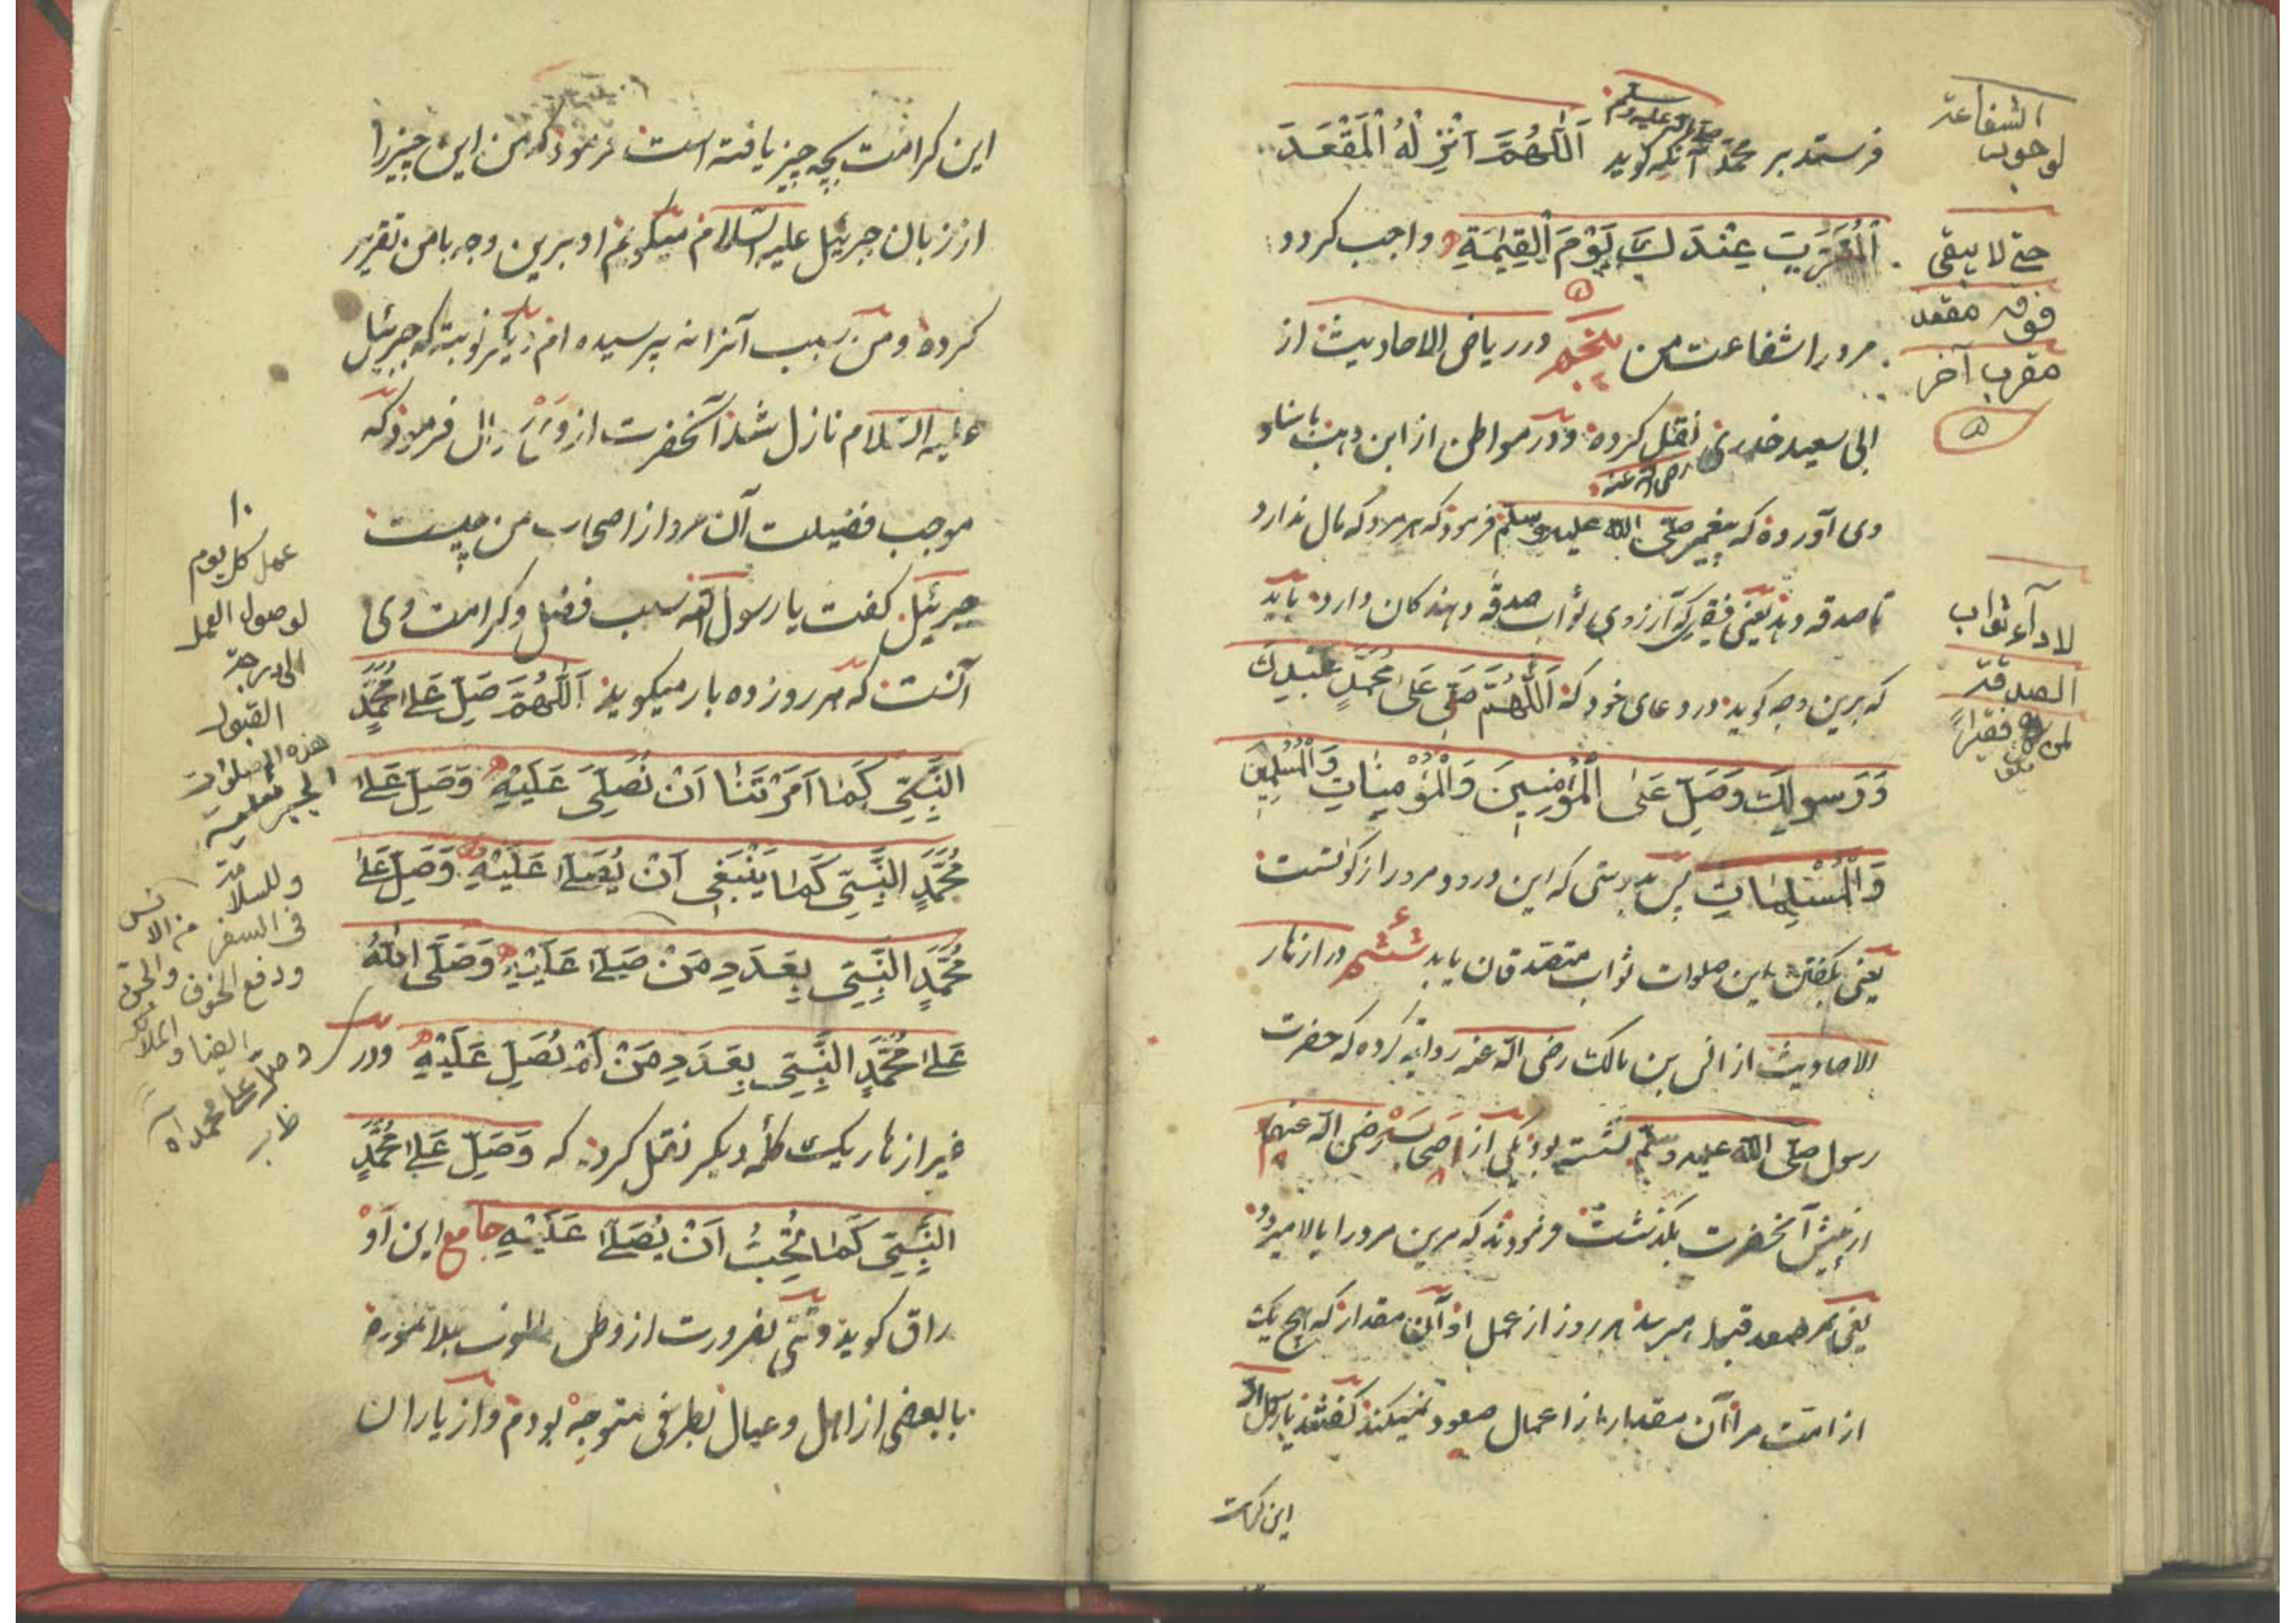 فرستد بر محمد آنکه گوید اَللّٰهُمَّ اَنْزِلْهُ الْمَقْعَدَ
صلی الله علیه وسلم
الْمُقَرَّبَ عِنْدَكَ يَوْمَ الْقِيٰمَةِ واجب کردد
مرورا شفاعت من پنجم ودر ریاض الاحادیث از
ابی سعید خدری نقل کرده ودر مواطن از ابن وهب باسناد
رضی الله عنه
وی آورده که پیغمبر صلّی الله علیه وسلّم فرمود که هر مرد که مال ندارد
تا صدقه دهد یعنی فقیر که آرزوی ثواب صدقه دهندکان دارد باید
که برین وجه کوید در دعای خود که اَللّٰهُمَّ صَلِّ عَلٰى مُحَمَّدٍ عَبْدِكَ
وَرَسُولِكَ وَصَلِّ عَلَى الْمُؤْمِنِينَ وَالْمُؤْمِنَاتِ وَالْمُسْلِمِينَ
وَالْمُسْلِمَاتِ پس بدرستی که این درود مرورا زکوتست
یعنی بکفتن این صلوات ثواب متصدقان یابد ششم در ازهار
الاحادیث از انس بن مالک رضی الله عنه روایة کرده که حضرت
رسول صلّی الله علیه وسلّم نشسته بود یکی از اصحاب رضی الله عنهم
از پیش آنحضرت بکذشت فرمودند که مرین مرد را بالا میرود
یعنی بمصعد قبول میرسد هر روز از عمل او آن مقدار که هیچ یک
از امّت مرا آن مقدار از اعمال صعود نمیکند کفتند یا رسول الله
این کرامت
الشفاعة
لوجوب
حتى لا يبقى
فوقه مقعد
مقرب آخر
۵
لاداء ثواب
الصدقة
لمن فقيراً
این کرامت بچه چیز یافته است فرمود که من این چیز را
از زبان جبرئیل علیه السّلام میکویم او برین وجه با من تقریر
کرده ومن سبب آنرا نه پرسیده ام دیکر نوبته که جبرئیل
علیه السّلام نازل شد آنحضرت از وی سؤال فرمود که
موجب فضیلت آن مرد از اصحاب من چیست
جبرئیل کفت یا رسول الله سبب فضل وکرامت وی
آنست که هر روز ده بار میکوید اَللّٰهُمَّ صَلِّ عَلٰى مُحَمَّدٍ
النَّبِيِّ كَمَا اَمَرْتَنَا اَنْ نُصَلِّيَ عَلَيْهِ وَصَلِّ عَلٰى
مُحَمَّدٍ النَّبِيِّ كَمَا يَنْبَغِي اَنْ يُصَلّٰى عَلَيْهِ وَصَلِّ عَلٰى
مُحَمَّدٍ النَّبِيِّ بِعَدَدِ مَنْ صَلّٰى عَلَيْهِ وَصَلَّى اللّٰهُ
عَلٰى مُحَمَّدٍ النَّبِيِّ بِعَدَدِ مَنْ لَمْ يُصَلِّ عَلَيْهِ ودر
غیر ازهار یک کلمه دیکر نقل کرد که وَصَلِّ عَلٰى مُحَمَّدٍ
النَّبِيِّ كَمَا تُحِبُّ اَنْ يُصَلّٰى عَلَيْهِ جامع این او
راق کوید وقتی بضرورت از وطن
با بعضی از اهل وعیال بطرفی متوجه بودم واز یاران
۱۰
عمل كل يوم
لوصول العمل
الى درجة
القبول
هذه الصلوات
وللسلامة
فى السفر من الانس
ودفع الخوف والجن
ايضا و
وصلّ على محمد اه